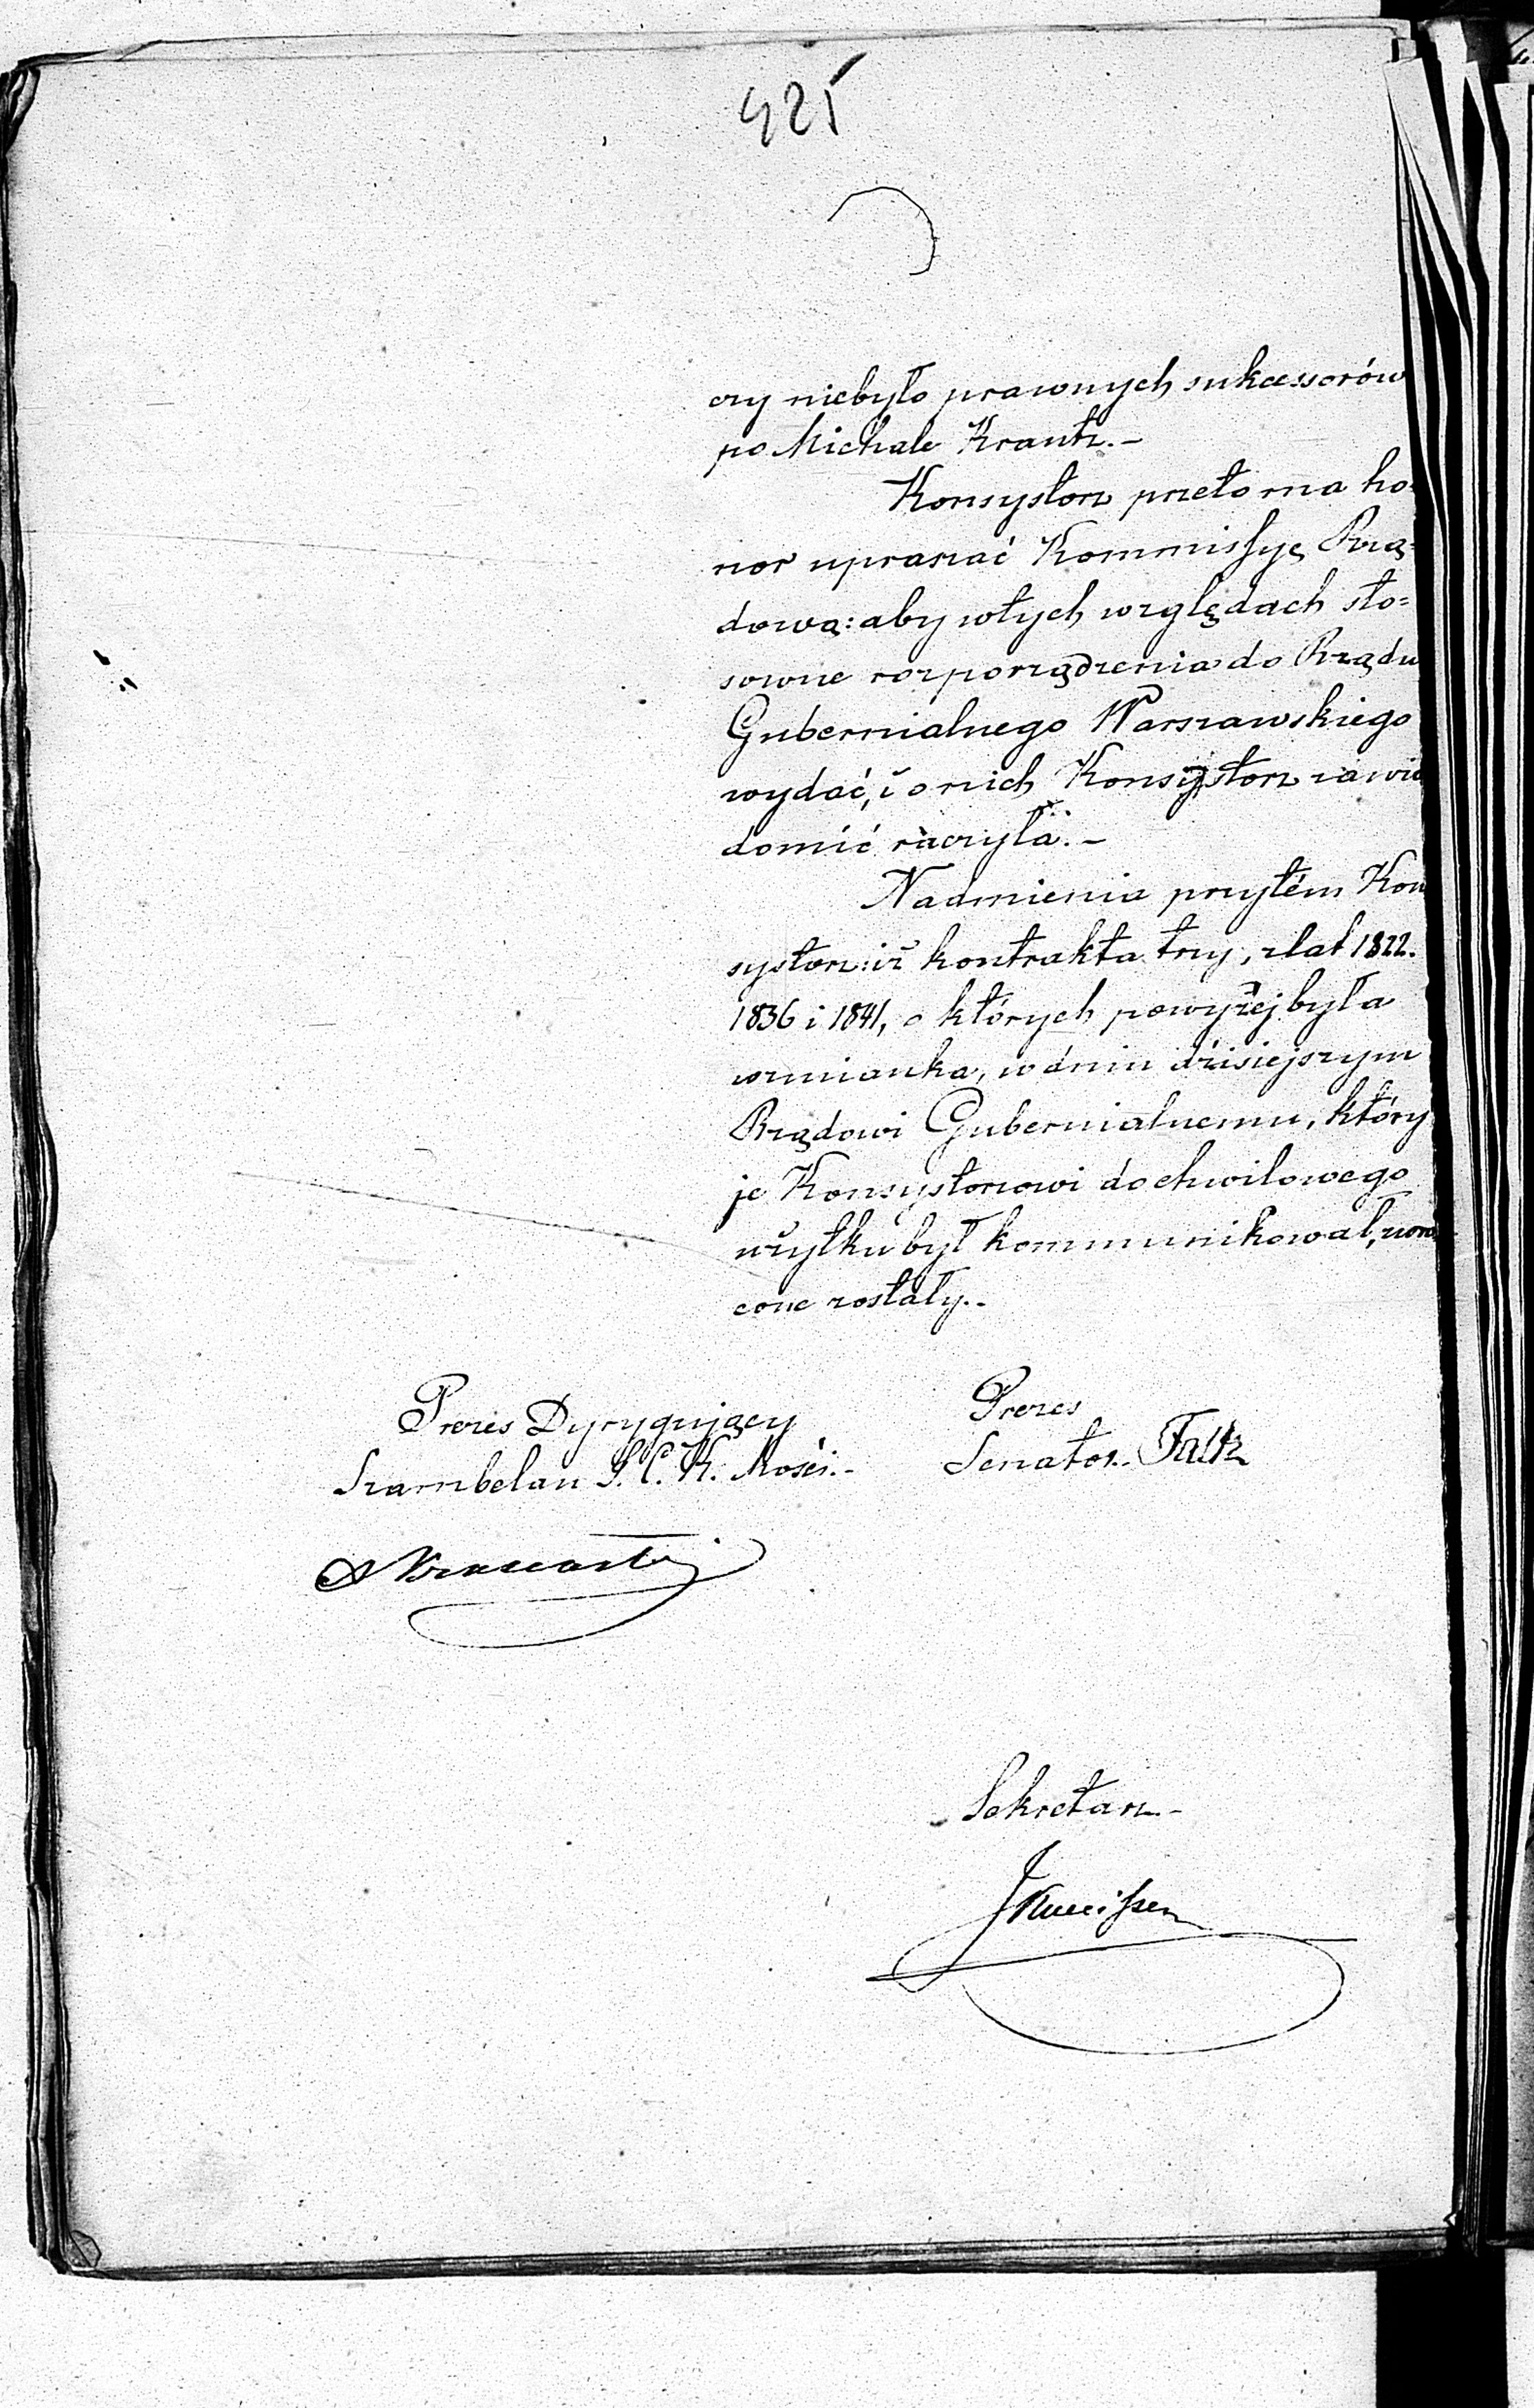 425
czy niebyło prawnych sukcessorów
po Michale Krantz.-
Konsystorz przeto ma ho-
nor upraszać Kommissyę Rzą=
dową: aby wtych względach sto=
sowne rozporządzenia do Rządu
Gubernialnego Warszawskiego
wydać, i o nich Konsystorz zawia
domić raczyła.-
Nadmienia przytém Kon
systorz: iż kontrakta trzy, zlat 1822.
1836 i 1841, o których powyżej była
wzmianka, w dniu dzisiejszym
Rządowi Gubernialnemu, który
je Konsystorzowi do chwilowego
użytku był kommunikował, zwró
cone zostały.-
Prezes Dyrygujący
Szambelan J. C. K. Mości.-
Prezes
Senator.
Sekretarz.-